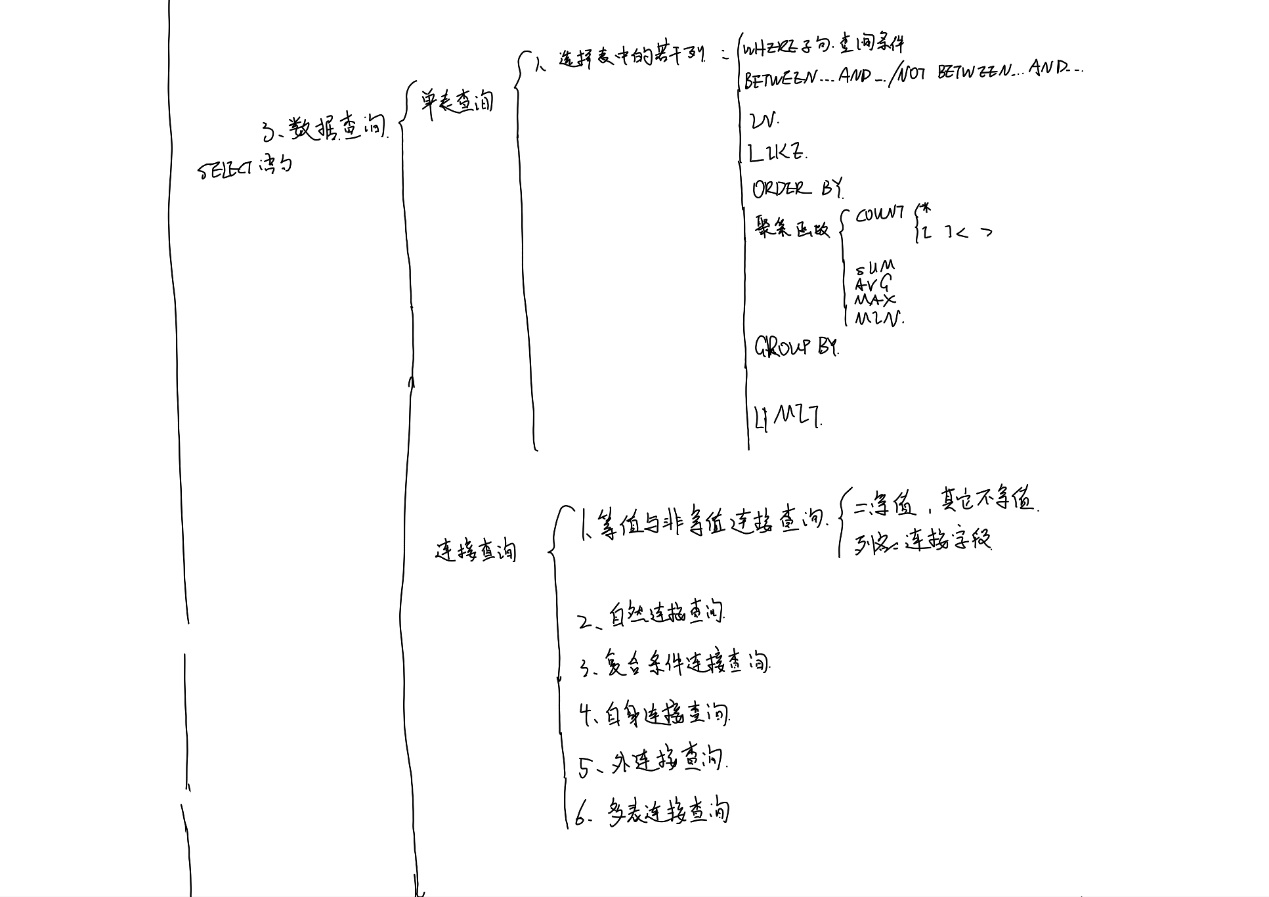 3、数据查询.
SELECT语句
单表查询
1、选择表中的若干列:
WHERE子句.查询条件
BETWEEN...AND.../NOT BETWEEN...AND...
IN.
LIKE.
ORDER BY.
聚集函数
COUNT
*
[ ]< >
SUM
AVG
MAX
MIN.
GROUP BY.
LIMIT.
连接查询
1、等值与非等值连接查询.
=等值,其它不等值.
列名=连接字段
2、自然连接查询.
3、复合条件连接查询.
4、自身连接查询.
5、外连接查询.
6、多表连接查询